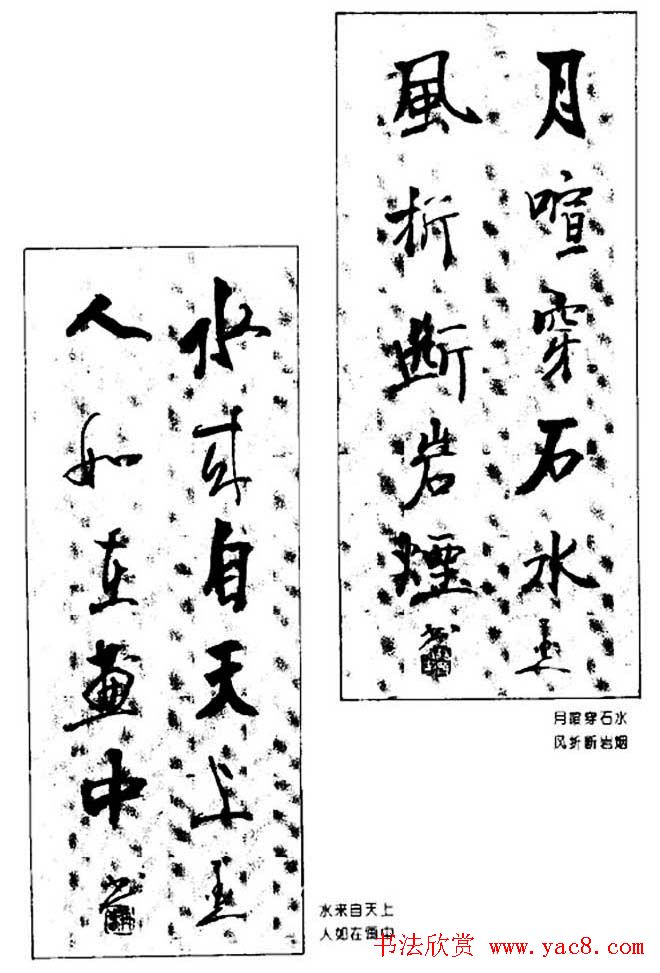 月喧穿石水
風折斷岩煙
月喧穿石水
风折断岩烟
水来自天上
人如在畫中
水来自天上
人如在画中
书法欣赏 www.yac8.com